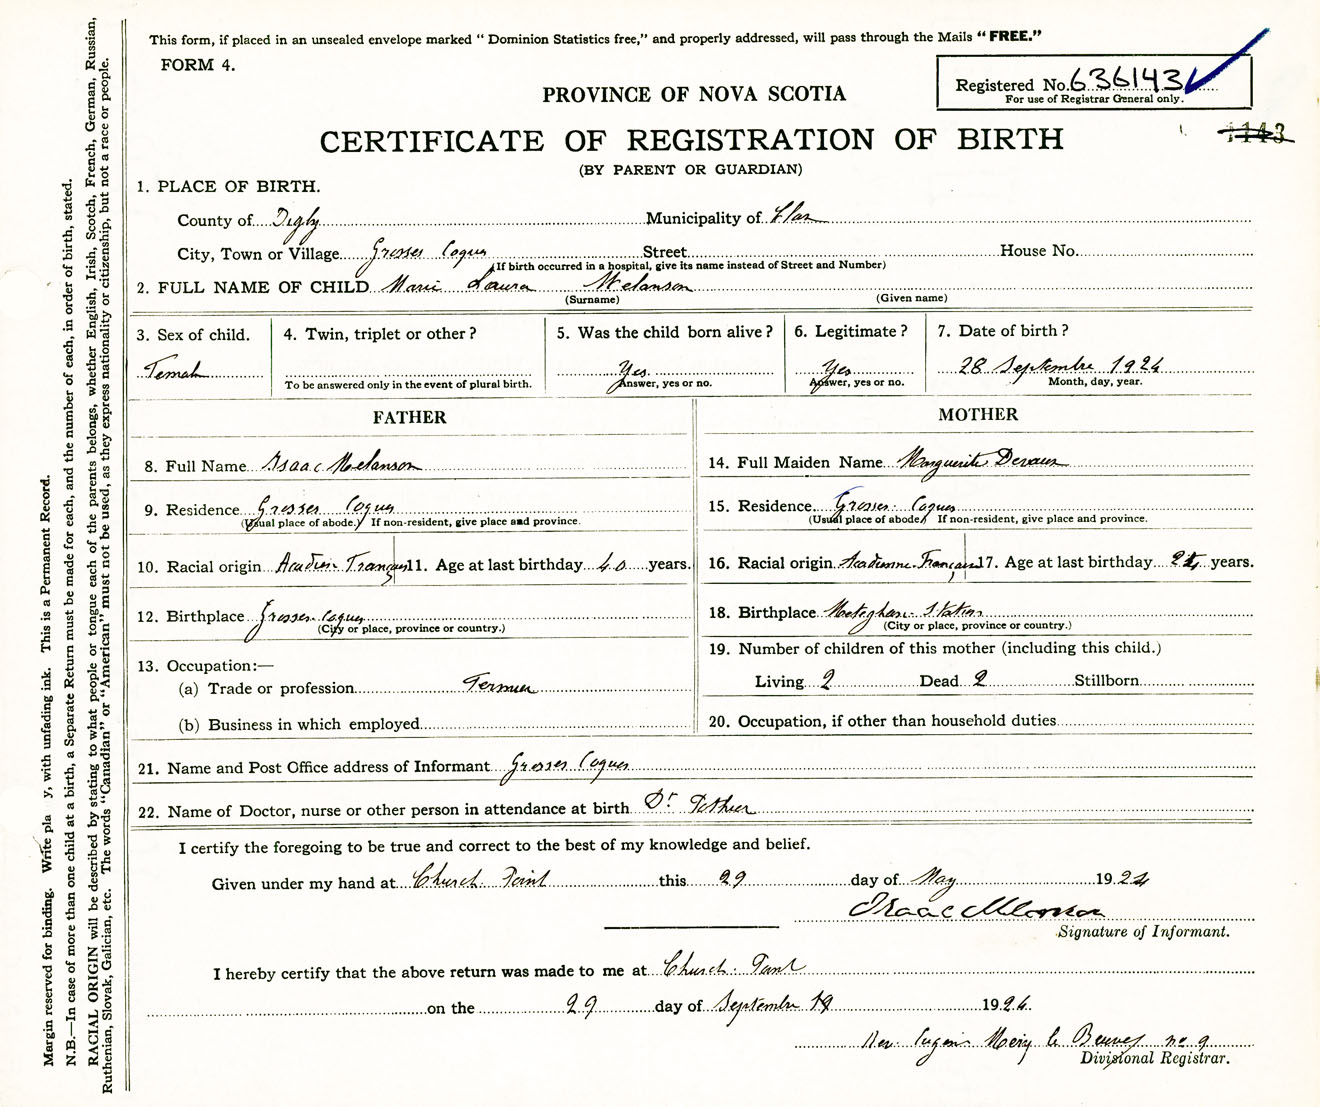 This form, if placed in an unsealed envelope marked "Dominion Statistics free," and properly addressed, will pass through the Mails "FREE."
FORM 4.
Registered No. 636143
For use of Registrar General only.
PROVINCE OF NOVA SCOTIA
1143
CERTIFICATE OF REGISTRATION OF BIRTH
(BY PARENT OR GUARDIAN)
1. PLACE OF BIRTH.
County of Digby Municipality of Clare
City, Town or Village Grosses Coques Street House No.
(If birth occurred in a hospital, give its name instead of Street and Number)
2. FULL NAME OF CHILD Marie Laura Melanson
(Surname) (Given name)
3. Sex of child. 4. Twin, triplet or other? 5. Was the child born alive? 6. Legitimate? 7. Date of birth?
Female Yes Yes 28 Septembre 1924
To be answered only in the event of plural birth. Answer, yes or no. Answer, yes or no. Month, day, year.
FATHER
8. Full Name Isaac Melanson
9. Residence Grosses Coques
(Usual place of abode.) If non-resident, give place and province.
10. Racial origin Acadien Français 11. Age at last birthday 40 years.
12. Birthplace Grosses Coques
(City or place, province or country.)
13. Occupation:—
(a) Trade or profession Fermier
(b) Business in which employed
MOTHER
14. Full Maiden Name Marguerite Deveau
15. Residence Grosses Coques
(Usual place of abode) If non-resident, give place and province.
16. Racial origin Acadienne Français 17. Age at last birthday years.
18. Birthplace Meteghan Station
(City or place, province or country.)
19. Number of children of this mother (including this child.)
Living 2 Dead 2 Stillborn
20. Occupation, if other than household duties
21. Name and Post Office address of Informant Grosses Coques
22. Name of Doctor, nurse or other person in attendance at birth Dr
I certify the foregoing to be true and correct to the best of my knowledge and belief.
Given under my hand at Church Point this 29 day of May 1924
Isaac Melanson
Signature of Informant.
I hereby certify that the above return was made to me at Church Point
on the 29 day of Septembre 19 1924.
Rev. no 9
Divisional Registrar.
Margin reserved for binding. Write pla y, with unfading ink. This is a Permanent Record.
N.B.—In case of more than one child at a birth, a Separate Return must be made for each, and the number of each, in order of birth, stated.
RACIAL ORIGIN will be described by stating to what people or tongue each of the parents belongs, whether English, Irish, Scotch, French, German, Russian,
Ruthenian, Slovak, Galician, etc. The words "Canadian" or "American" must not be used, as they express nationality or citizenship, but not a race or people.